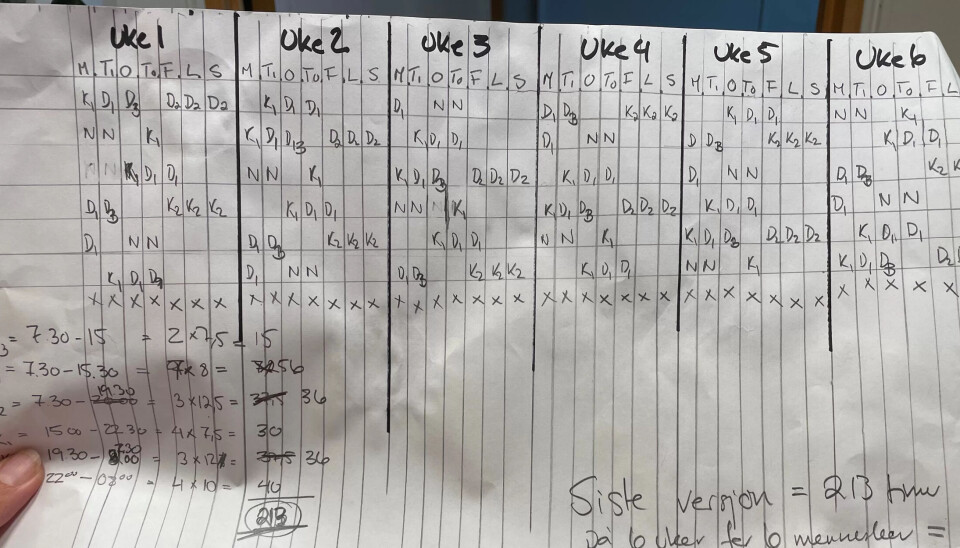 Uke 1 Uke 2 Uke 3 Uke 4 Uke 5 Uke 6
M Ti O To F L S M Ti O To F L S M Ti O To F L S M Ti O To F L S M Ti O To F L S M Ti O To F L
K1 D1 D3 D2 D2 D2 K1 D1 D1 D1 N N D1 D3 K2 K2 K2 K1 D1 D1 N N K1
N N K1 K1 D1 D13 D2 D2 D2 K1 D1 D1 D1 N N D D3 K2 K2 K2 K1 D1 D1
N N K1 D1 D1 N N K1 K1 D1 D3 D2 D2 D2 K1 D1 D1 D1 N N D1 D3 K2 K
D1 D3 K2 K2 K2 K1 D1 D1 N N N K1 K1 D1 D3 D2 D2 D2 K1 D1 D1 D1 N N
D1 N N D1 D3 K2 K2 K2 K1 D1 D1 N N K1 K1 D1 D3 D2 D2 D2 K1 D1 D1
K1 D1 D3 D1 N N D1 D3 K2 K2 K2 K1 D1 D1 N N K1 K1 D1 D3 D2 D
x x x x x x x x x x x x x x x x x x x x x x x x x x x x x x x x x x x x x x x x x
3 = 7.30 - 15 = 2 x 7,5 = 15
= 7.30 - 15.30 = 7 x 8 = 56
2 = 7.30 - 19.30 = 3 x 12,5 = 36
= 15 00 - 22 30 = 4 x 7,5 = 30
19 30 - 7 30 = 3 x 12 = 36
22 00 - 0 00 = 4 x 10 = 40
213
Siste version = 213 timer
På 6 uker for 6 mennesker =